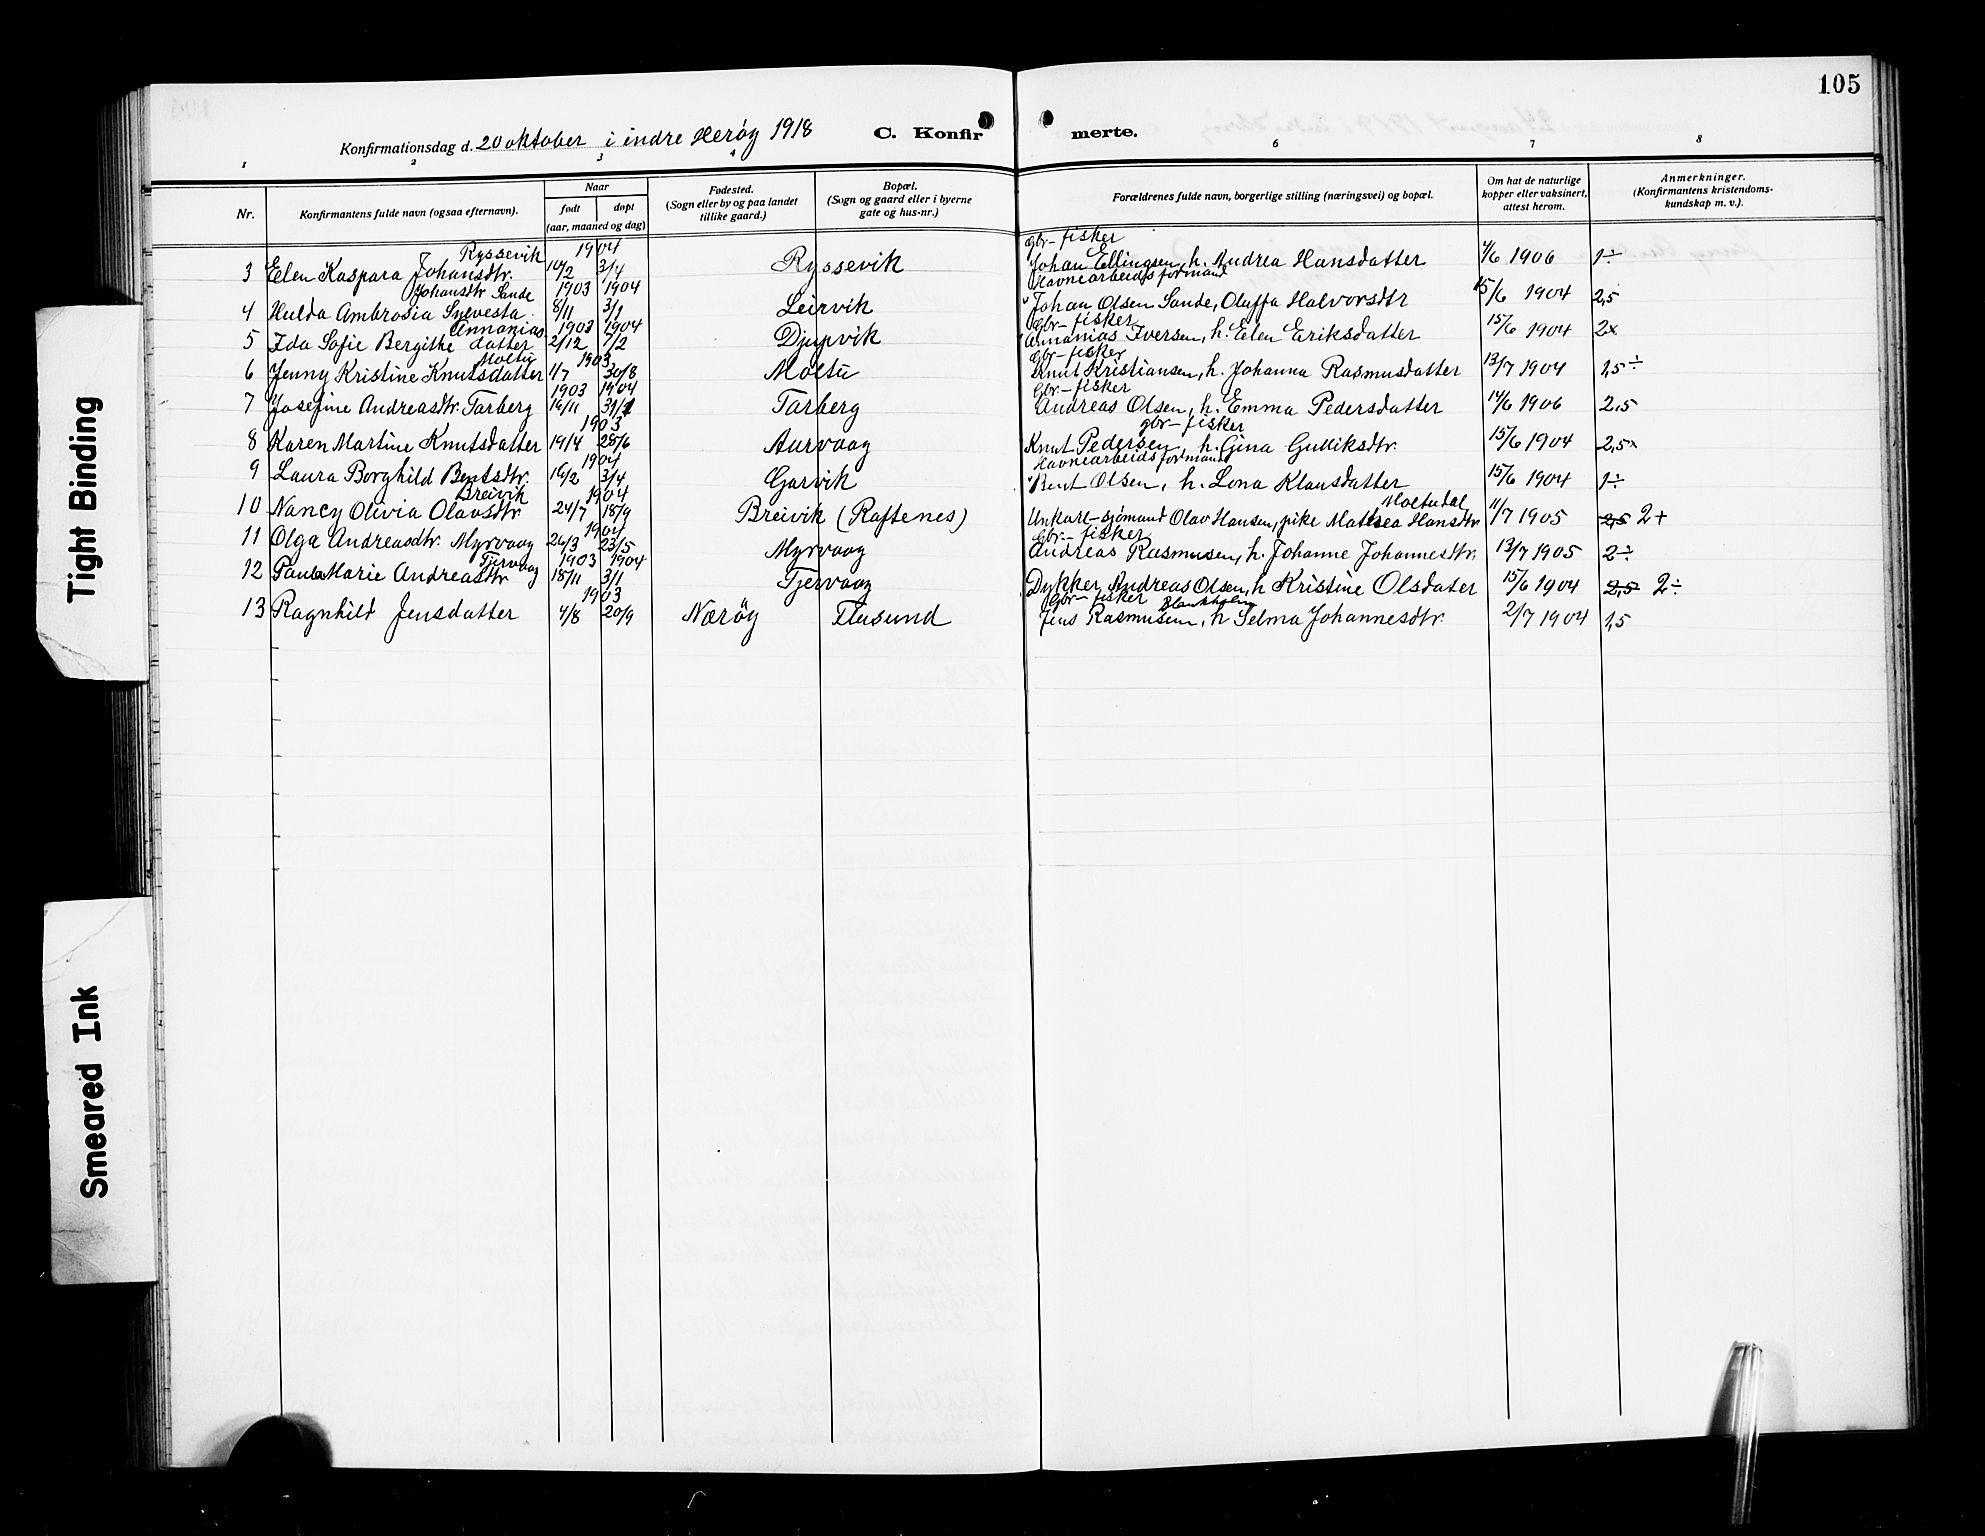 105
Konfirmationsdag d. 20 oktober i indre Herøy 1918 C. Konfirmerte.
1 2 3 4 6 7 8
Nr. Konfirmantens fulde navn (ogsaa efternavn). Naar født døpt (aar, maaned og dag) Fødested. (Sogn eller by og paa landet tillike gaard.) Bopæl. (Sogn og gaard eller i byerne gate og hus-nr.) Forældrenes fulde navn, borgerlige stilling (næringsvei) og bopæl. Om hat de naturlige kopper eller vaksinert, attest herom. Anmerkninger. (Konfirmantens kristendoms-kundskap m. v.).
Ryssevik 1904 gbr-fisker
3 Elen Kaspara Johansdtr. 10/2 3/4 Ryssevik Johan Ellingsen, h. Andrea Hansdatter 4/6 1906 1÷
Johansdtr Sande 1903 1904 Havnearbeidsformand
4 Hulda Ambrosia Sylvesta 8/11 3/1 Leirvik Johan Olsen Sande, Oluffa Halvorsdtr 15/6 1904 2,5
Annanias 1903 1904 gbr-fisker
5 Ida Sofie Bergithe datter 2/12 7/2 Djupvik Annanias Iversen, h. Elen Eriksdatter 15/6 1904 2x
Moltu 1903 gbr-fisker
6 Jenny Kristine Knutsdatter 1/7 30/8 Moltu Knut Kristiansen, h. Johanna Rasmusdatter 13/7 1904 1,5÷
1903 1904 gbr-fisker
7 Josefine Andreasdtr. Tarberg 16/11 31/1 Tarberg Andreas Olsen, h. Emma Pedersdatter 14/6 1906 2,5
1903 gbr-fisker
8 Karen Martine Knutsdatter 19/4 28/6 Aurvaag Knut Pedersen h. Gina Gulliksdtr. 15/6 1904 2,5x
1904 Havnearbeidsformand
9 Laura Borghild Bentsdtr. 16/2 3/4 Garvik Bent Olsen, h. Lona Klausdatter 15/6 1904 1÷
Breivik 1904 Moltudal
10 Nancy Olivia Olavsdtr 24/7 18/9 Breivik (Raftenes) Unkarl-sjömand Olav Hansen, pike Mathea Hansdtr 11/7 1905 2,5 2+
1904 gbr-fisker
11 Olga Andreasdtr. Myrvaag 26/3 23/5 Myrvaag Andreas Rasmusen, h. Johanne Johannesdtr. 13/7 1905 2÷
Tjervaag 1903 1904
12 Paula Marie Andreasdtr 18/11 3/1 Tjervaag Dykker Andreas Olsen, h Kristine Olsdater 15/6 1904 2,5 2÷
1903 gbr-fisker Blankholm
13 Ragnhild Jensdatter 4/8 20/9 Nærøy Flusund Jens Rasmusen, h Selma Johannesdtr. 2/7 1904 1,5
Tight Binding
Smeared Ink